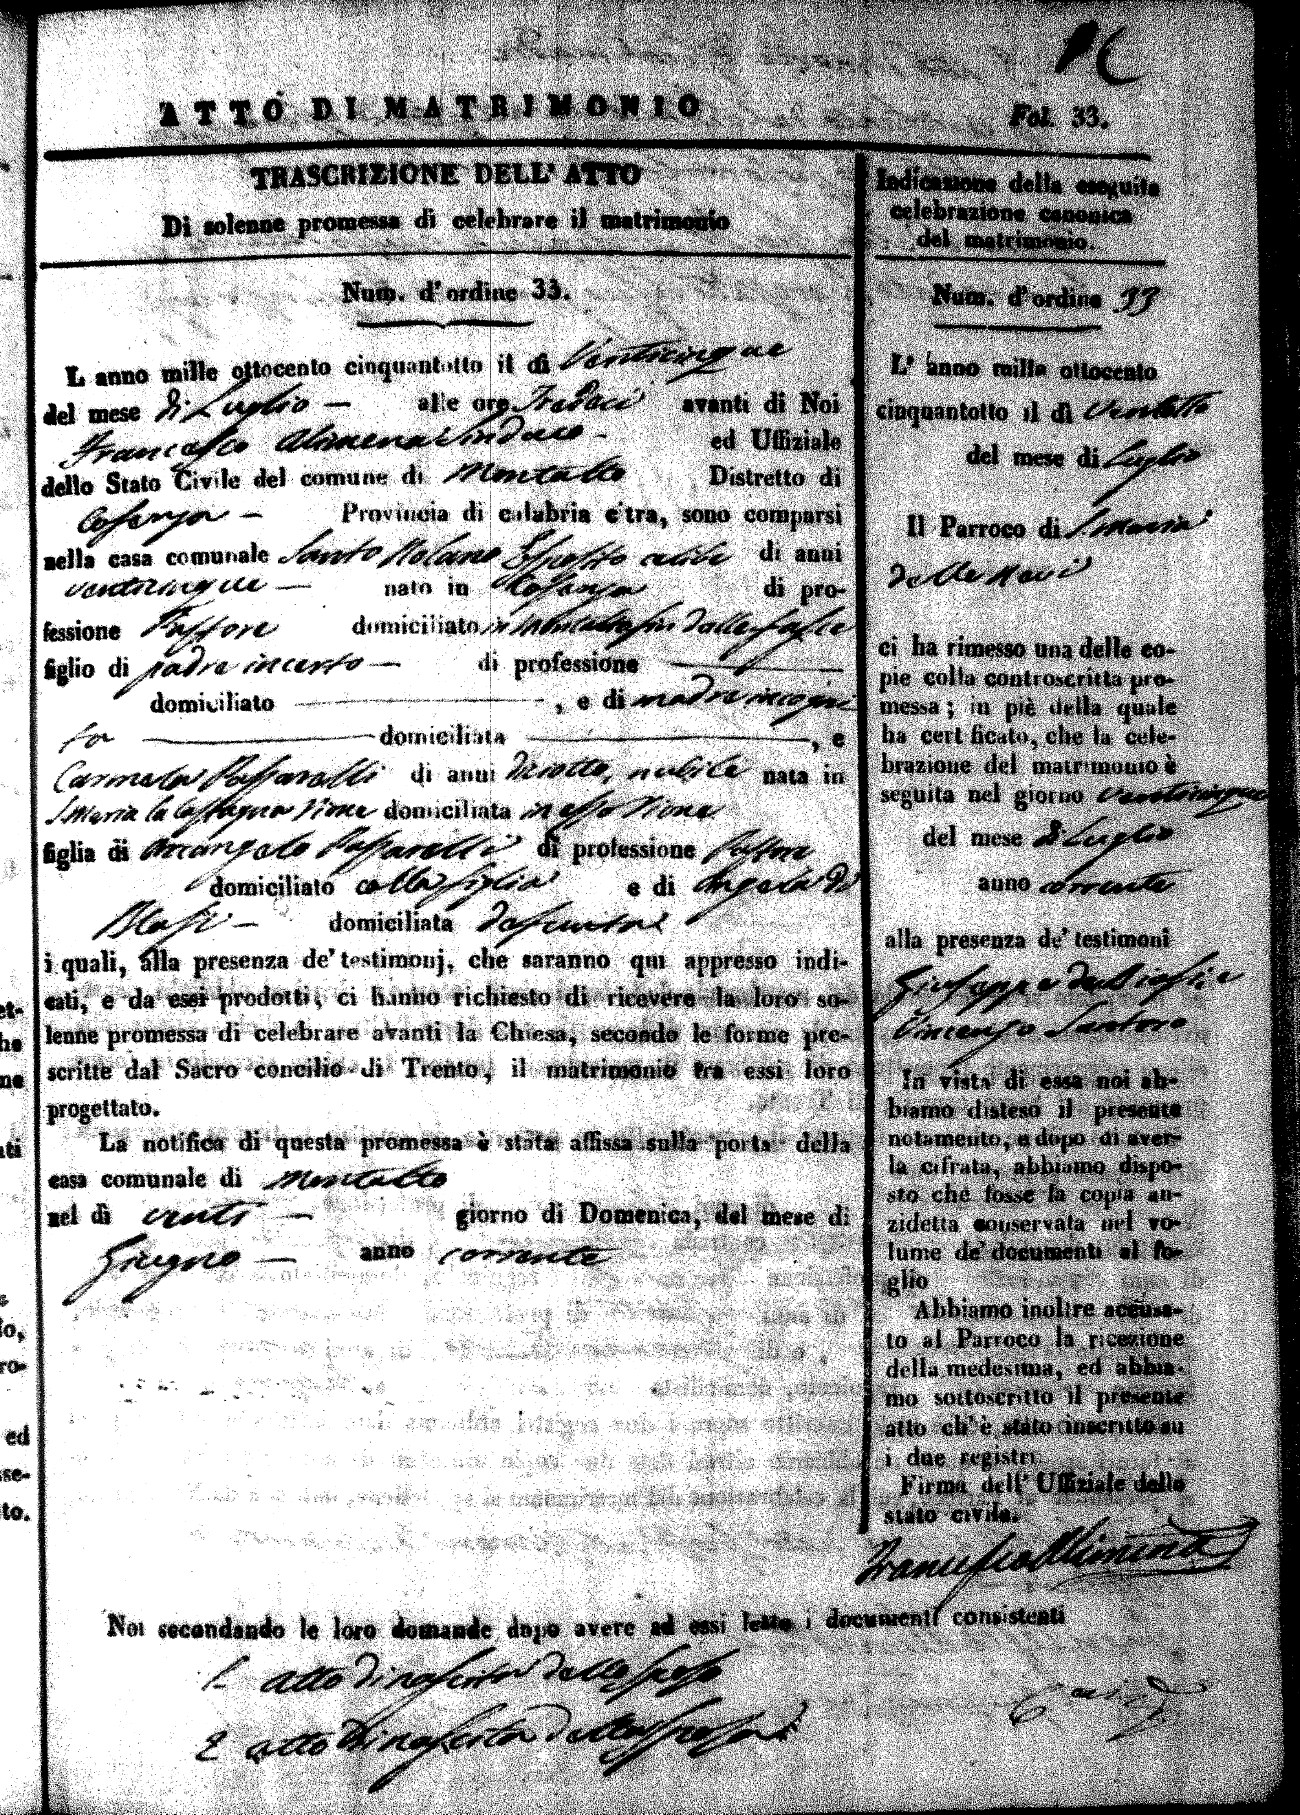 ATTO DI MATRIMONIO
Fol. 33.
TRASCRIZIONE DELL' ATTO
Di solenne promessa di celebrare il matrimonio
Num. d'ordine 33.
L anno mille ottocento cinquantotto il dì Venticinque
del mese di Luglio — alle ore Tredeci avanti di Noi
Francesco Alimena Sindaco - ed Uffiziale
dello Stato Civile del comune di Montalto Distretto di
Cosenza — Provincia di calabria citra, sono comparsi
nella casa comunale Santo Esposto celibe di anni
venticinque — nato in Cosenza di pro-
fessione Pastore domiciliato in Montalto fin dalle fasce
figlio di padre incerto — di professione —
domiciliato — , e di madre incogni
ta — domiciliata — , e
Carmela Passarelli di anni diciotto, nubile nata in
S. Maria la Castagna Rione domiciliata in esso Rione
figlia di Arcangelo Passarelli di professione Pastore
domiciliato colla figlia e di Angela De
Blasi — domiciliata defunta
i quali, alla presenza de' testimonj, che saranno qui appresso indi-
cati, e da essi prodotti, ci hanno richiesto di ricevere la loro so-
lenne promessa di celebrare avanti la Chiesa, secondo le forme pre-
scritte dal Sacro concilio di Trento, il matrimonio tra essi loro
progettato.
La notifica di questa promessa è stata affissa sulla porta della
casa comunale di Montalto
nel dì venti — giorno di Domenica, del mese di
Giugno — anno corrente
Indicazione della eseguita
celebrazione canonica
del matrimonio.
Num. d'ordine 33
L' anno mille ottocento
cinquantotto il dì Ventotto
del mese di Luglio
Il Parroco di S. Maria
della
ci ha rimesso una delle co-
pie colla controscritta pro-
messa; in piè della quale
ha certificato, che la cele-
brazione del matrimonio è
seguita nel giorno venticinque
del mese di Luglio
anno corrente
alla presenza de' testimoni
Giuseppe de Blasi e
Vincenzo Santoro
In vista di essa noi ab-
biamo disteso il presente
notamento, e dopo di aver-
la cifrata, abbiamo dispo-
sto che fosse la copia an-
zidetta conservata nel vo-
lume de' documenti al fo-
glio
Abbiamo inoltre accusa-
to al Parroco la ricezione
della medesima, ed abbia-
mo sottoscritto il presente
atto ch'è stato inscritto su
i due registri
Firma dell' Uffiziale dello
stato civile.
Francesco Alimena
Noi secondando le loro domande dopo avere ad essi letto i documenti consistenti
1. atto di nascita dello sposo
2 atto di nascita della sposa